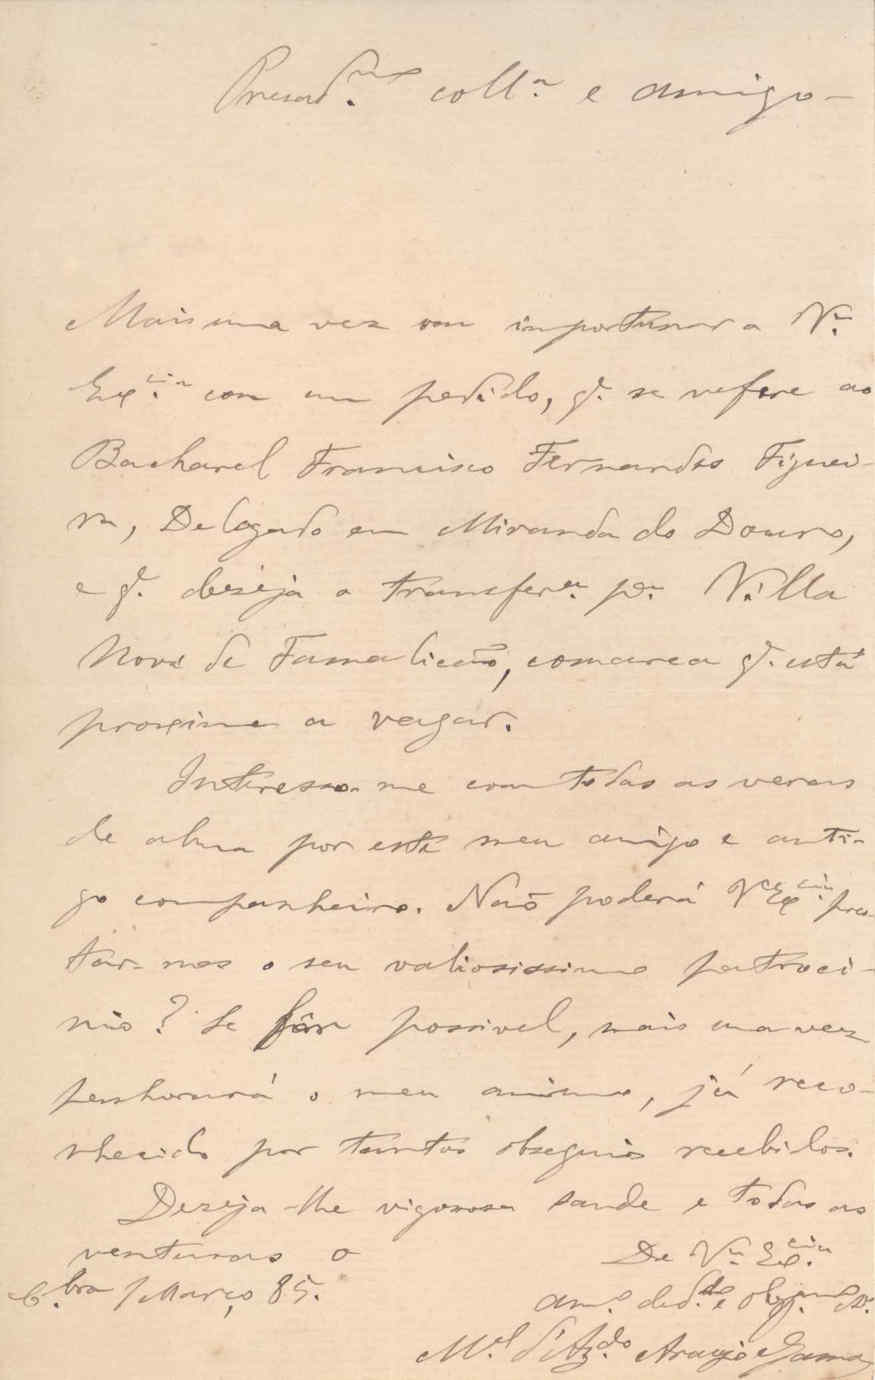 Presad.mo coll.a e amigo –
Mais uma vez vou importunar a V.a
Ex.cia com um pedido, q. se refere ao
Bacharel Francisco Fernandes Figuei-
ra, Delegado em Miranda do Douro,
e q. deseja a transfer.a p.a Villa
Nova de Famalicão, comarca q. está
proxima a vagar.
Interesso-me com todas as veras
de alma por este meu amigo e anti-
go companheiro. Não poderá V.ce Ex.cia pres-
tar-nos o seu valiosissimo patroci-
nio? Se fôr possivel, mais uma vez
penhorará o meu animo, já reco-
nhecido por tantos obsequios recebidos.
Dezeja-lhe vigorosa saude e todas as
venturas o
De V.a Ex.cia
C.bra 1 Março 85.
am.o ded.do e obg.mo
M.el d'Az.do Araujo e Gama